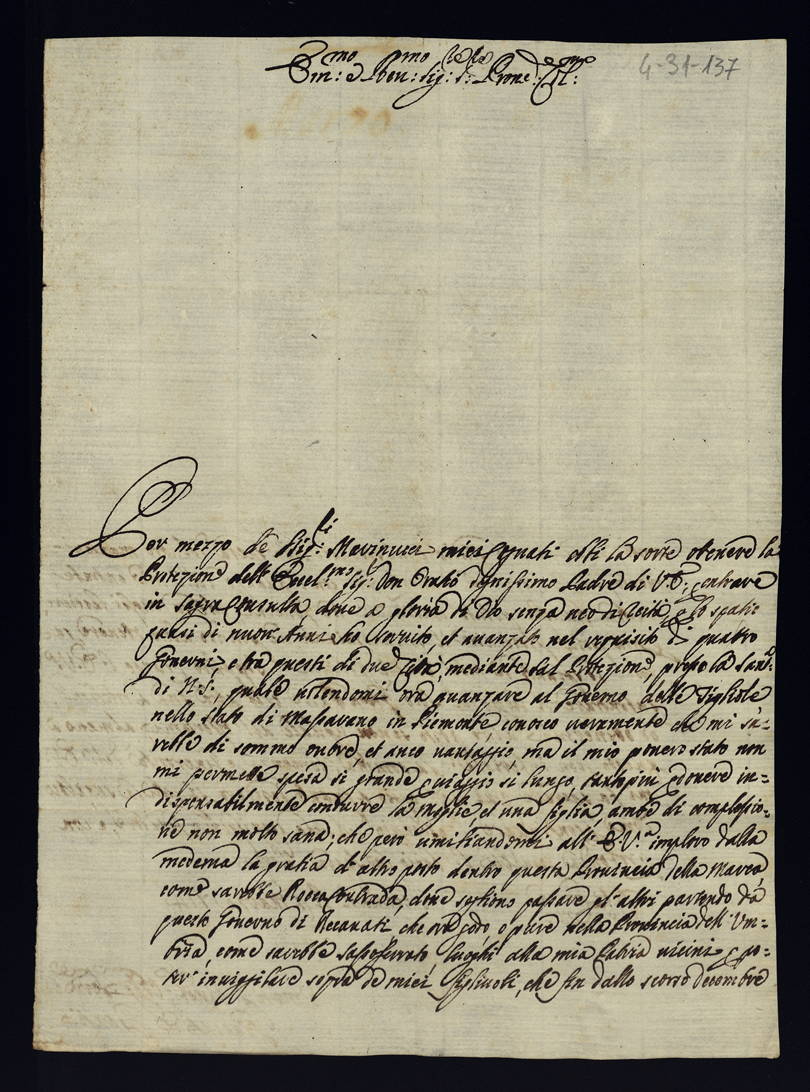 Em:mo e Rev:mo Sig: Prone
4-31-137
Per mezzo de Sig:ri Marinucci miei Cognati ebbi la sorte ottenere la
Protezione dell' Eccel:mo Sig: Don dignissimo Padre di V.E: entrare
in Sagra Consulta, dove a gloria di Dio senza neo di p lo spatio
quasi di nuove Anni ho servito, et avanzato nel requisito di quattro
Governi, e trà questi di due Città, mediante tal Protezione, presso la San:tà
di N:S:, quale volendomi ora avanzare al Governo delle
nello stato di Masserano in Piemonte, conosco veramente che mi sa=
rebbe di sommo onore, et anco vantaggio, ma il mio povero stato non
mi permette spesa si grande, viaggio si lungo, tanto più dovere in=
dispensabilmente condurre la moglie, et una figlia, ambe di complessio=
ne non molto sana; che però umiliandomi all' E.V:ra imploro dalla
medema la gratia d'altro posto dentro questa Provincia della Marca,
come sarebbe Rocca Contrada, dove sogliono passare gl'altri partendo da
questo Governo di Recanati, che ora godo, o pure nella Provincia dell' Um=
bria, come sarebbe Sassoferrato, luoghi alla mia Patria vicini p po=
ter' invigilare sopra de miei figliuoli, che fin dallo scorso decembre